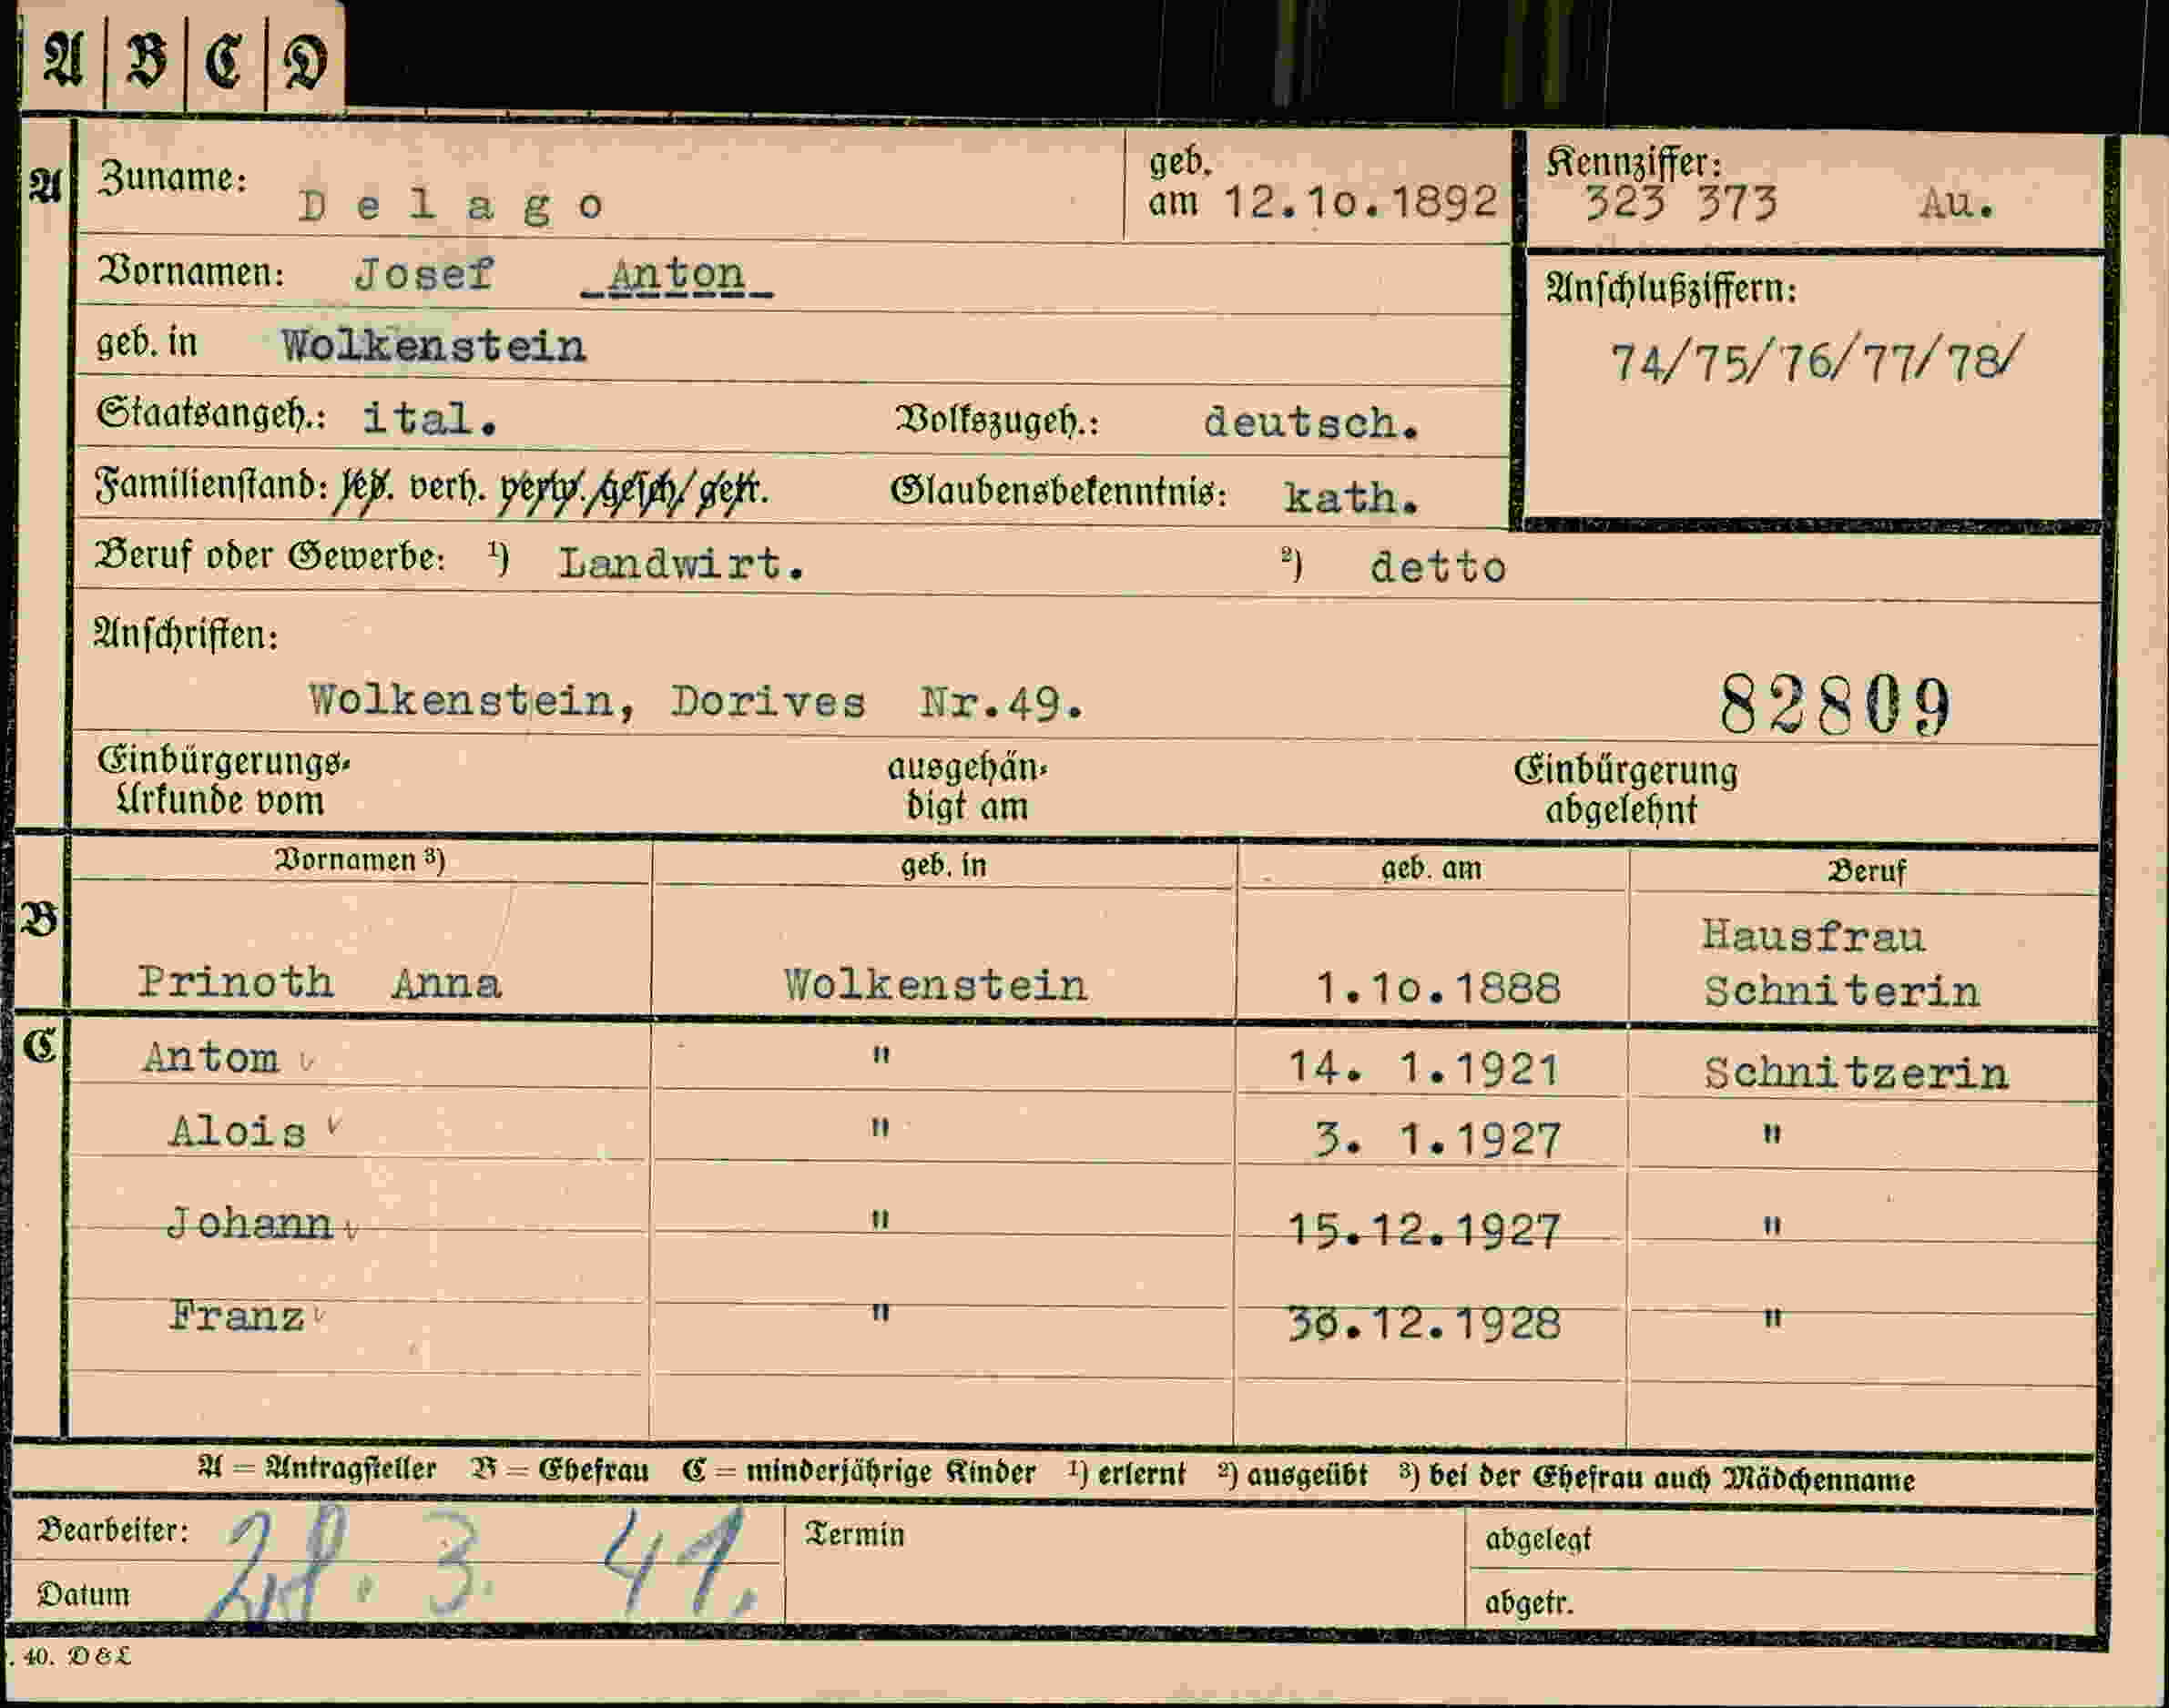 A B C D
A Zuname: Delago geb. am 12.10.1892 Kennziffer: 323 373 Au.
Vornamen: Josef Anton
Anschlußziffern:
geb. in Wolkenstein
74/75/76/77/78/
Staatsangeh.: ital. Volkszugeh.: deutsch.
Familienstand: led. verh. verw. gesch. getr. Glaubensbekenntnis: kath.
Beruf oder Gewerbe: 1) Landwirt. 2) detto
Anschriften:
Wolkenstein, Dorives Nr.49. 82809
Einbürgerungs- ausgehän- Einbürgerung
Urkunde vom digt am abgelehnt
Vornamen 3) geb. in geb. am Beruf
B Hausfrau
Prinoth Anna Wolkenstein 1.10.1888 Schniterin
C Antom " 14. 1.1921 Schnitzerin
Alois " 3. 1.1927 "
Johann " 15.12.1927 "
Franz " 30.12.1928 "
A = Antragsteller B = Ehefrau C = minderjährige Kinder 1) erlernt 2) ausgeübt 3) bei der Ehefrau auch Mädchenname
Bearbeiter: 28. 3. 41. Termin abgelegt
Datum abgetr.
. 40. D & L